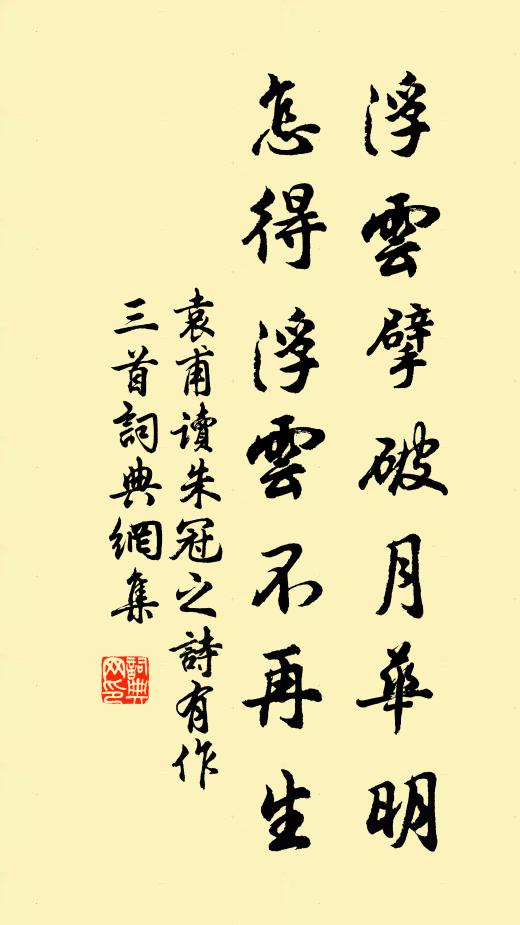 浮雲擘破月華明
怎得浮雲不再生
袁甫讀朱冠之詩有作
三首詞典網集
詞典
网印